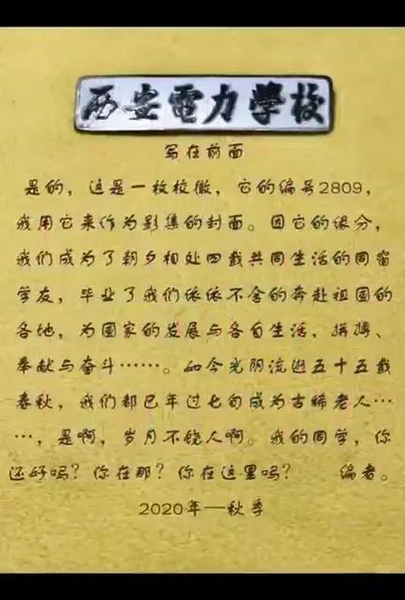 西安電力學校
写在前面
是的，这是一枚校徽，它的编号2809，
我用它来作为影集的封面。因它的缘分，
我们成为了朝夕相处四载共同生活的同窗
学友，毕业了我们依依不舍的奔赴祖国的
各地，为国家的发展与各自生活，拼搏、
奉献与奋斗……。如今光阴流逝五十五载
春秋，我们都已年过七旬成为古稀老人…
…，是啊，岁月不饶人啊。我的同学，你
还好吗？你在那？你在这里吗？ 编者。
2020年—秋季